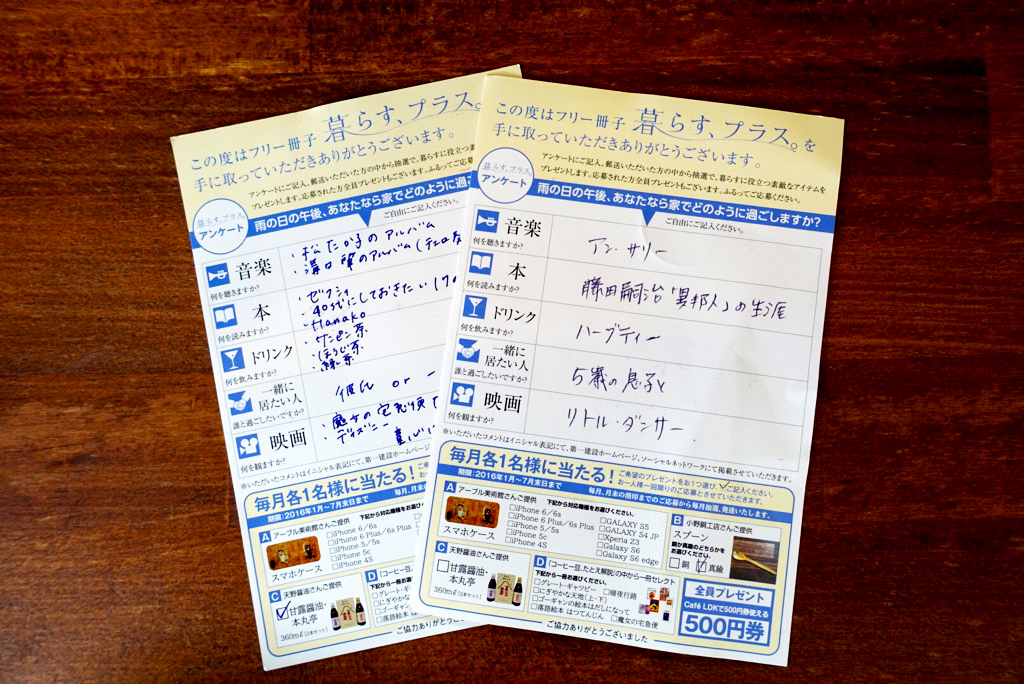 この度はフリー冊子 暮らす、プラス。
手に取っていただきありがとうございます。
アンケートにご記入、郵送いただいた方の中から抽選で、暮らすに役立つ素
プレゼントします。応募された方全員プレゼントもございます。ふるってご応募
暮らす、プラス
アンケート
雨の日の午後、あなたなら家でどのように過ご
ご自由にご記入ください。
音楽
何を聴きますか?
・松たか子のアルバム
・溝口肇のアルバム(チェロ
本
何を読みますか?
・ゼクシィ
・40代にしておきたい17の
・Hanako
ドリンク
何を飲みますか?
・ほうじ茶
・緑茶
一緒に
居たい人
誰と過ごしたいですか?
彼氏 or
映画
何を観ますか?
・魔女の宅急便
・ディズニー
※いただいたコメントはイニシャル表記にて、第一建設ホームページ、
毎月各1名様に当たる!
期間:2016年1月〜7月末日まで
毎月、月末
A アーブル美術館さんご提供
下記から対応機種をお選びください。
スマホケース
□iPhone 6/6s
□iPhone 6 Plus/6s Plus
□iPhone 5/5s
□iPhone 5c
□iPhone 4S
C 天野醤油さんご提供
☑甘露醤油・
本丸亭
360mℓ(2本セット)
D 「コーヒー豆、たとえ
下記から一冊お選び
□グレート・ギャツ
□にぎやかな
□ゴーギャン
□落語絵本 は
ご協力ありがとう
この度はフリー冊子 暮らす、プラス。を
手に取っていただきありがとうございます。
アンケートにご記入、郵送いただいた方の中から抽選で、暮らすに役立つ素敵なアイテムを
プレゼントします。応募された方全員プレゼントもございます。ふるってご応募ください。
暮らす、プラス
アンケート
雨の日の午後、あなたなら家でどのように過ごしますか?
ご自由にご記入ください。
音楽
何を聴きますか?
アン・サリー
本
何を読みますか?
藤田嗣治「異邦人」の生涯
ドリンク
何を飲みますか?
ハーブティー
一緒に
居たい人
誰と過ごしたいですか?
5歳の息子と
映画
何を観ますか?
リトル・ダンサー
※いただいたコメントはイニシャル表記にて、第一建設ホームページ、ソーシャルネットワークにて掲載させていただきます。
毎月各1名様に当たる!
ご希望のプレゼントをお1つ選び、✓ご記入ください。
お一人様一回限りのご応募とさせていただきます。
期間:2016年1月〜7月末日まで
毎月、月末の消印までのご応募から毎月抽選、発送いたします。
A アーブル美術館さんご提供
下記から対応機種をお選びください。
スマホケース
□iPhone 6/6s
□iPhone 6 Plus/6s Plus
□iPhone 5/5s
□iPhone 5c
□iPhone 4S
□GALAXY S5
□GALAXY S4 JP
□Xperia Z3
□Galaxy S6
□Galaxy S6 edge
B 小野銅工店さんご提供
スプーン
銅か真鍮のどちらかを
お選びください。
□銅 ☑真鍮
C 天野醤油さんご提供
□甘露醤油・
本丸亭
360mℓ(2本セット)
D 「コーヒー豆、たとえ解説」の中から一冊セレクト
下記から一冊お選びください。
□グレート・ギャツビー □暗夜行路
□にぎやかな天地(上・下)
□ゴーギャンの絵本はだしになって
□落語絵本 はつてんじん □魔女の宅急便
全員プレゼント
Café LDKで500円券使える
500円券
ご協力ありがとうございました